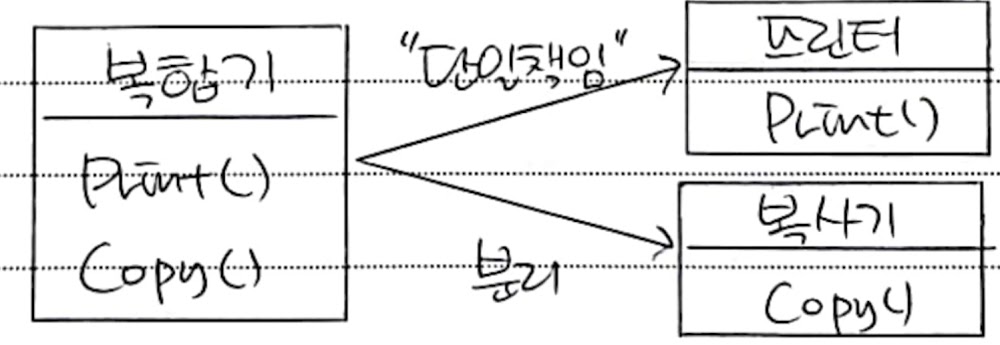 복합기
Print()
Copy()
"단일책임"
분리
프린터
Print()
복사기
Copy()